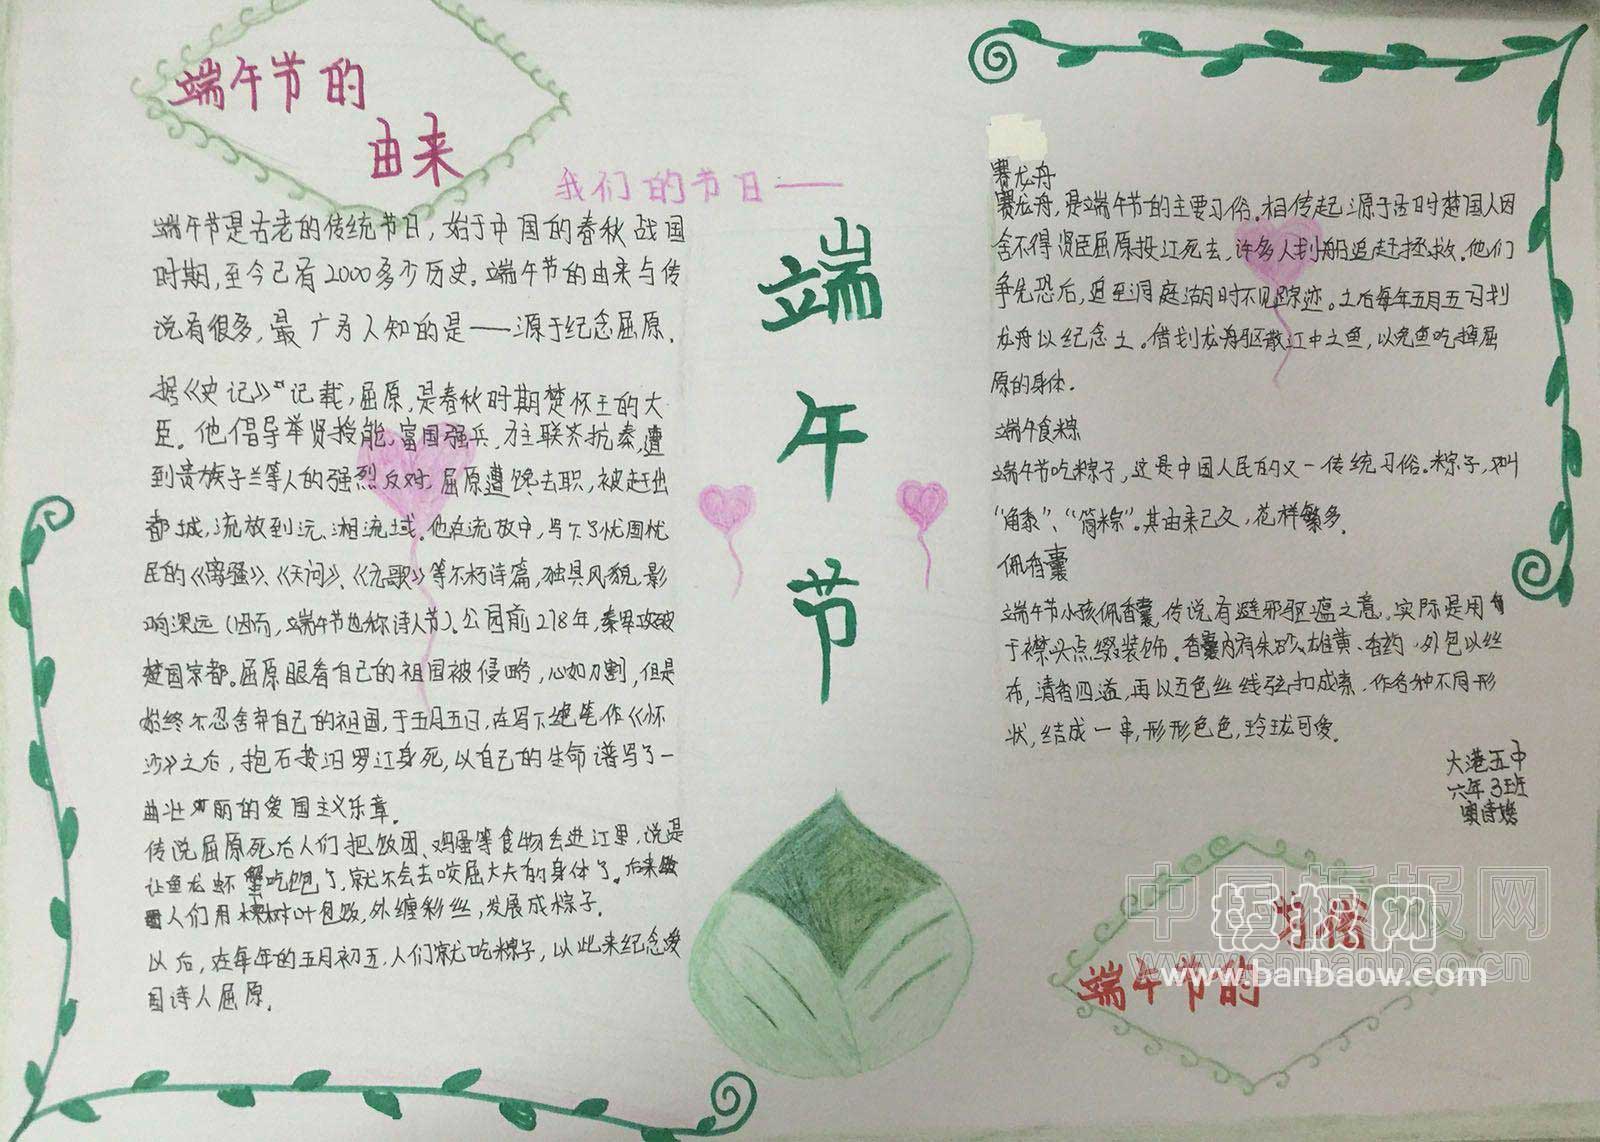 端午节的
由来
我们的节日——
端午节
端午节是古老的传统节日，始于中国的春秋战国
时期，至今已有2000多少历史。端午节的由来与传
说有很多，最广为人知的是——源于纪念屈原。
据《史记》记载，屈原，是春秋时期楚怀王的大
臣。他倡导举贤授能，富国强兵，力主联齐抗秦，遭
到贵族子兰等人的强烈反对，屈原遭馋去职，被赶出
都城，流放到沅、湘流域。他在流放中，写下了忧国忧
民的《离骚》、《天问》、《九歌》等不朽诗篇，独具风貌，影
响深远（因而，端午节也称诗人节）。公园前278年，秦军攻破
楚国京都。屈原眼看自己的祖国被侵略，心如刀割，但是
始终不忍舍弃自己的祖国，于五月五日，在写下绝笔作《怀
沙》之后，抱石投汨罗江身死，以自己的生命谱写了一
曲壮丽的爱国主义乐章。
传说屈原死后人们把饭团、鸡蛋等食物丢进江里，说是
让鱼龙虾蟹吃饱了，就不会去咬屈大夫的身体了。后来
人们用树叶包饭，外缠彩丝，发展成棕子。
以后，在每年的五月初五，人们就吃粽子，以此来纪念爱
国诗人屈原。
赛龙舟
赛龙舟，是端午节的主要习俗。相传起源于古时楚国人因
舍不得贤臣屈原投江死去，许多人划船追赶拯救。他们
争先恐后，追至洞庭湖时不见踪迹。之后每年五月五日划
龙舟以纪念之。借划龙舟驱散江中之鱼，以免鱼吃掉屈
原的身体.
端午食粽
端午节吃粽子，这是中国人民的又一传统习俗。粽子，叫
“角黍”、“筒粽”。其由来已久，花样繁多.
佩香囊
端午节小孩佩香囊，传说有避邪驱瘟之意，实际是用
于襟头点缀装饰。香囊内有朱砂、雄黄、香药，外包以丝
布，清香四溢，再以五色丝线弦扣成索，作各种不同形
状，结成一串，形形色色，玲珑可爱。
大港五中
六年3班
端午节的
习俗
中国板报网
www.banbaow.com